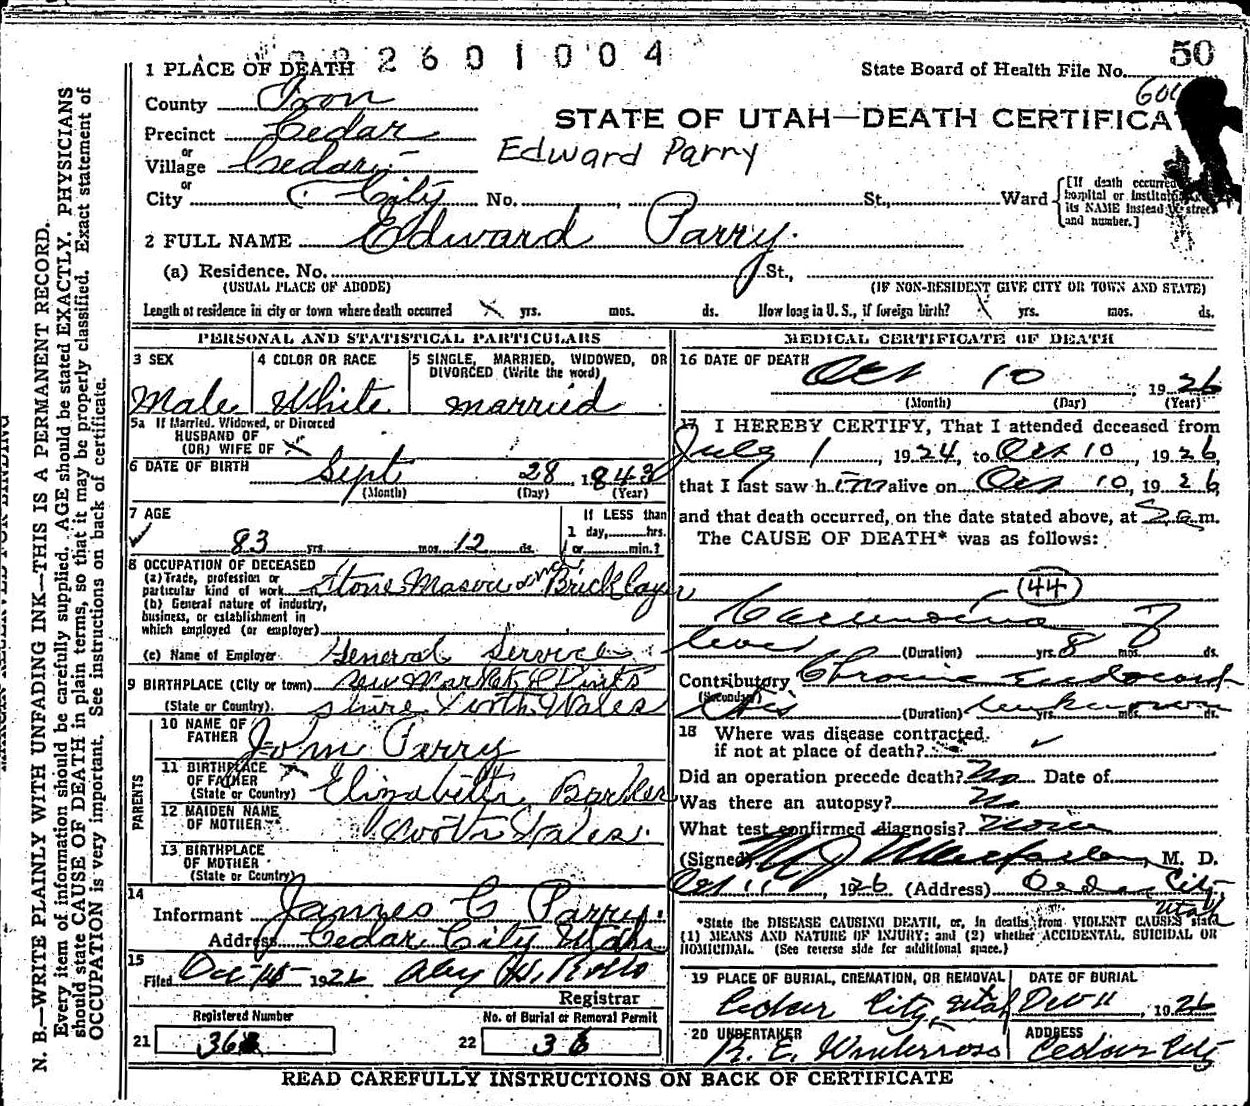 2 2 6 0 1 0 0 4
50
1 PLACE OF DEATH
State Board of Health File No.
County Iron
STATE OF UTAH—DEATH CERTIFICA
Precinct Cedar
Edward Parry
or
Village Cedar
or
City City No. St., Ward
[If death occurred
hospital or institu
its NAME instead of street
and number.]
2 FULL NAME Edward Parry.
(a) Residence. No. St.,
(USUAL PLACE OF ABODE) (IF NON-RESIDENT GIVE CITY OR TOWN AND STATE)
Length of residence in city or town where death occurred yrs. mos. ds. How long in U. S., if foreign birth? yrs. mos. ds.
PERSONAL AND STATISTICAL PARTICULARS
3 SEX
Male
4 COLOR OR RACE
White
5 SINGLE, MARRIED, WIDOWED, OR
DIVORCED (Write the word)
Married
5a If Married, Widowed, or Divorced
HUSBAND OF
(OR) WIFE OF
6 DATE OF BIRTH Sept 28 1843
(Month) (Day) (Year)
7 AGE
83 yrs. mos. 12 ds.
If LESS than
1 day, hrs.
or min.?
8 OCCUPATION OF DECEASED
(a) Trade, profession or
particular kind of work Stone Mason and Brick layer
(b) General nature of industry,
business, or establishment in
which employed (or employer)
(c) Name of Employer General Service
9 BIRTHPLACE (City or town) New Market Flints
(State or Country). shire North Wales
PARENTS
10 NAME OF
FATHER John Parry
11 BIRTHPLACE
OF FATHER
(State or Country) Elizabeth Barker
12 MAIDEN NAME
OF MOTHER North Wales.
13 BIRTHPLACE
OF MOTHER
(State or Country)
14
Informant James C Parry.
Address Cedar City Utah
15
Filed 1926
Registrar
Registered Number
21 36
No. of Burial or Removal Permit
22 36
MEDICAL CERTIFICATE OF DEATH
16 DATE OF DEATH
Oct 10, 1926
(Month) (Day) (Year)
17 I HEREBY CERTIFY, That I attended deceased from
July 1, 1924, to Oct 10, 1926,
that I last saw him alive on Oct 10, 1926
and that death occurred, on the date stated above, at 2 a.m.
The CAUSE OF DEATH* was as follows:
(44)
Carcinoma of
liver (Duration) yrs. 8 mos. ds.
Contributory Chronic Endocard
(Secondary)
itis (Duration) unknown yrs. mos. ds.
18 Where was disease contracted
if not at place of death?
Did an operation precede death? No Date of
Was there an autopsy? No
What test confirmed diagnosis? None
(Signed) M J Macfarlane, M. D.
Oct 11, 1926 (Address) Cedar City,
Utah
*State the DISEASE CAUSING DEATH, or, in deaths from VIOLENT CAUSES state
(1) MEANS AND NATURE OF INJURY; and (2) whether ACCIDENTAL, SUICIDAL OR
HOMICIDAL. (See reverse side for additional space.)
19 PLACE OF BURIAL, CREMATION, OR REMOVAL
Cedar City, Utah
DATE OF BURIAL
11, 1926
20 UNDERTAKER
ADDRESS
Cedar City
READ CAREFULLY INSTRUCTIONS ON BACK OF CERTIFICATE
N. B.—WRITE PLAINLY WITH UNFADING INK—THIS IS A PERMANENT RECORD.
Every item of information should be carefully supplied. AGE should be stated EXACTLY. PHYSICIANS
should state CAUSE OF DEATH in plain terms, so that it may be properly classified. Exact statement of
OCCUPATION is very important. See instructions on back of certificate.